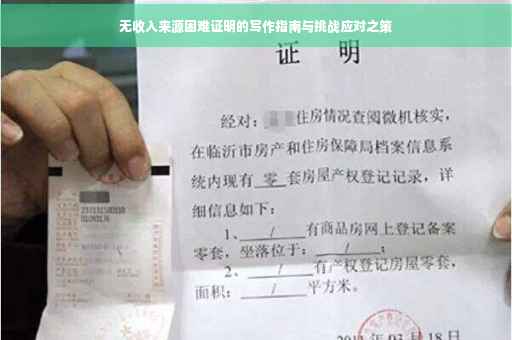 无收入来源困难证明的写作指南与挑战应对之策
证 明
经对：住房情况查阅微机核实，
在临沂市房产和住房保障局档案信息系
统内现有 零 套房屋产权登记记录，详
细信息如下：
1、 / 有商品房网上登记备案
零套，坐落位于： / ；
2、 / 有产权登记房屋零套，
面积： / 平方米。